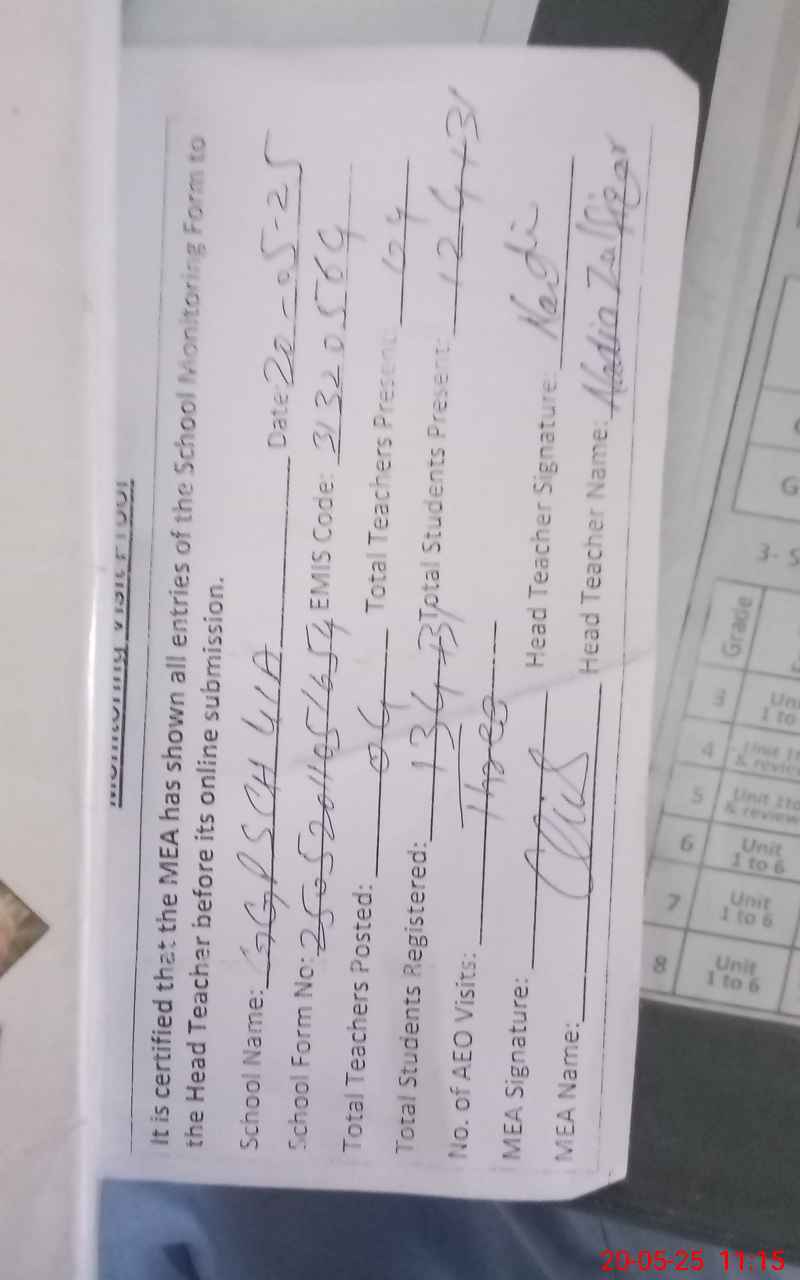 Monitoring Visit Proof
It is certified that the MEA has shown all entries of the School Monitoring Form to
the Head Teacher before its online submission.
School Name: GGPS CH 41A Date: 20-05-25
School Form No: EMIS Code: 31320564
Total Teachers Posted: 04 Total Teachers Present: 04
Total Students Registered: 134+31 Total Students Present: 124+31
No. of AEO Visits: Three
MEA Signature: Head Teacher Signature: Nadi
MEA Name: Head Teacher Name: Nadia Zulfiqar
3- S
G
Grade
3 Uni
1 to
4 Unit 1t
& review
5 Unit 1to
& review
6 Unit
1 to 6
7 Unit
1 to 6
8 Unit
1 to 6
20-05-25 11:15